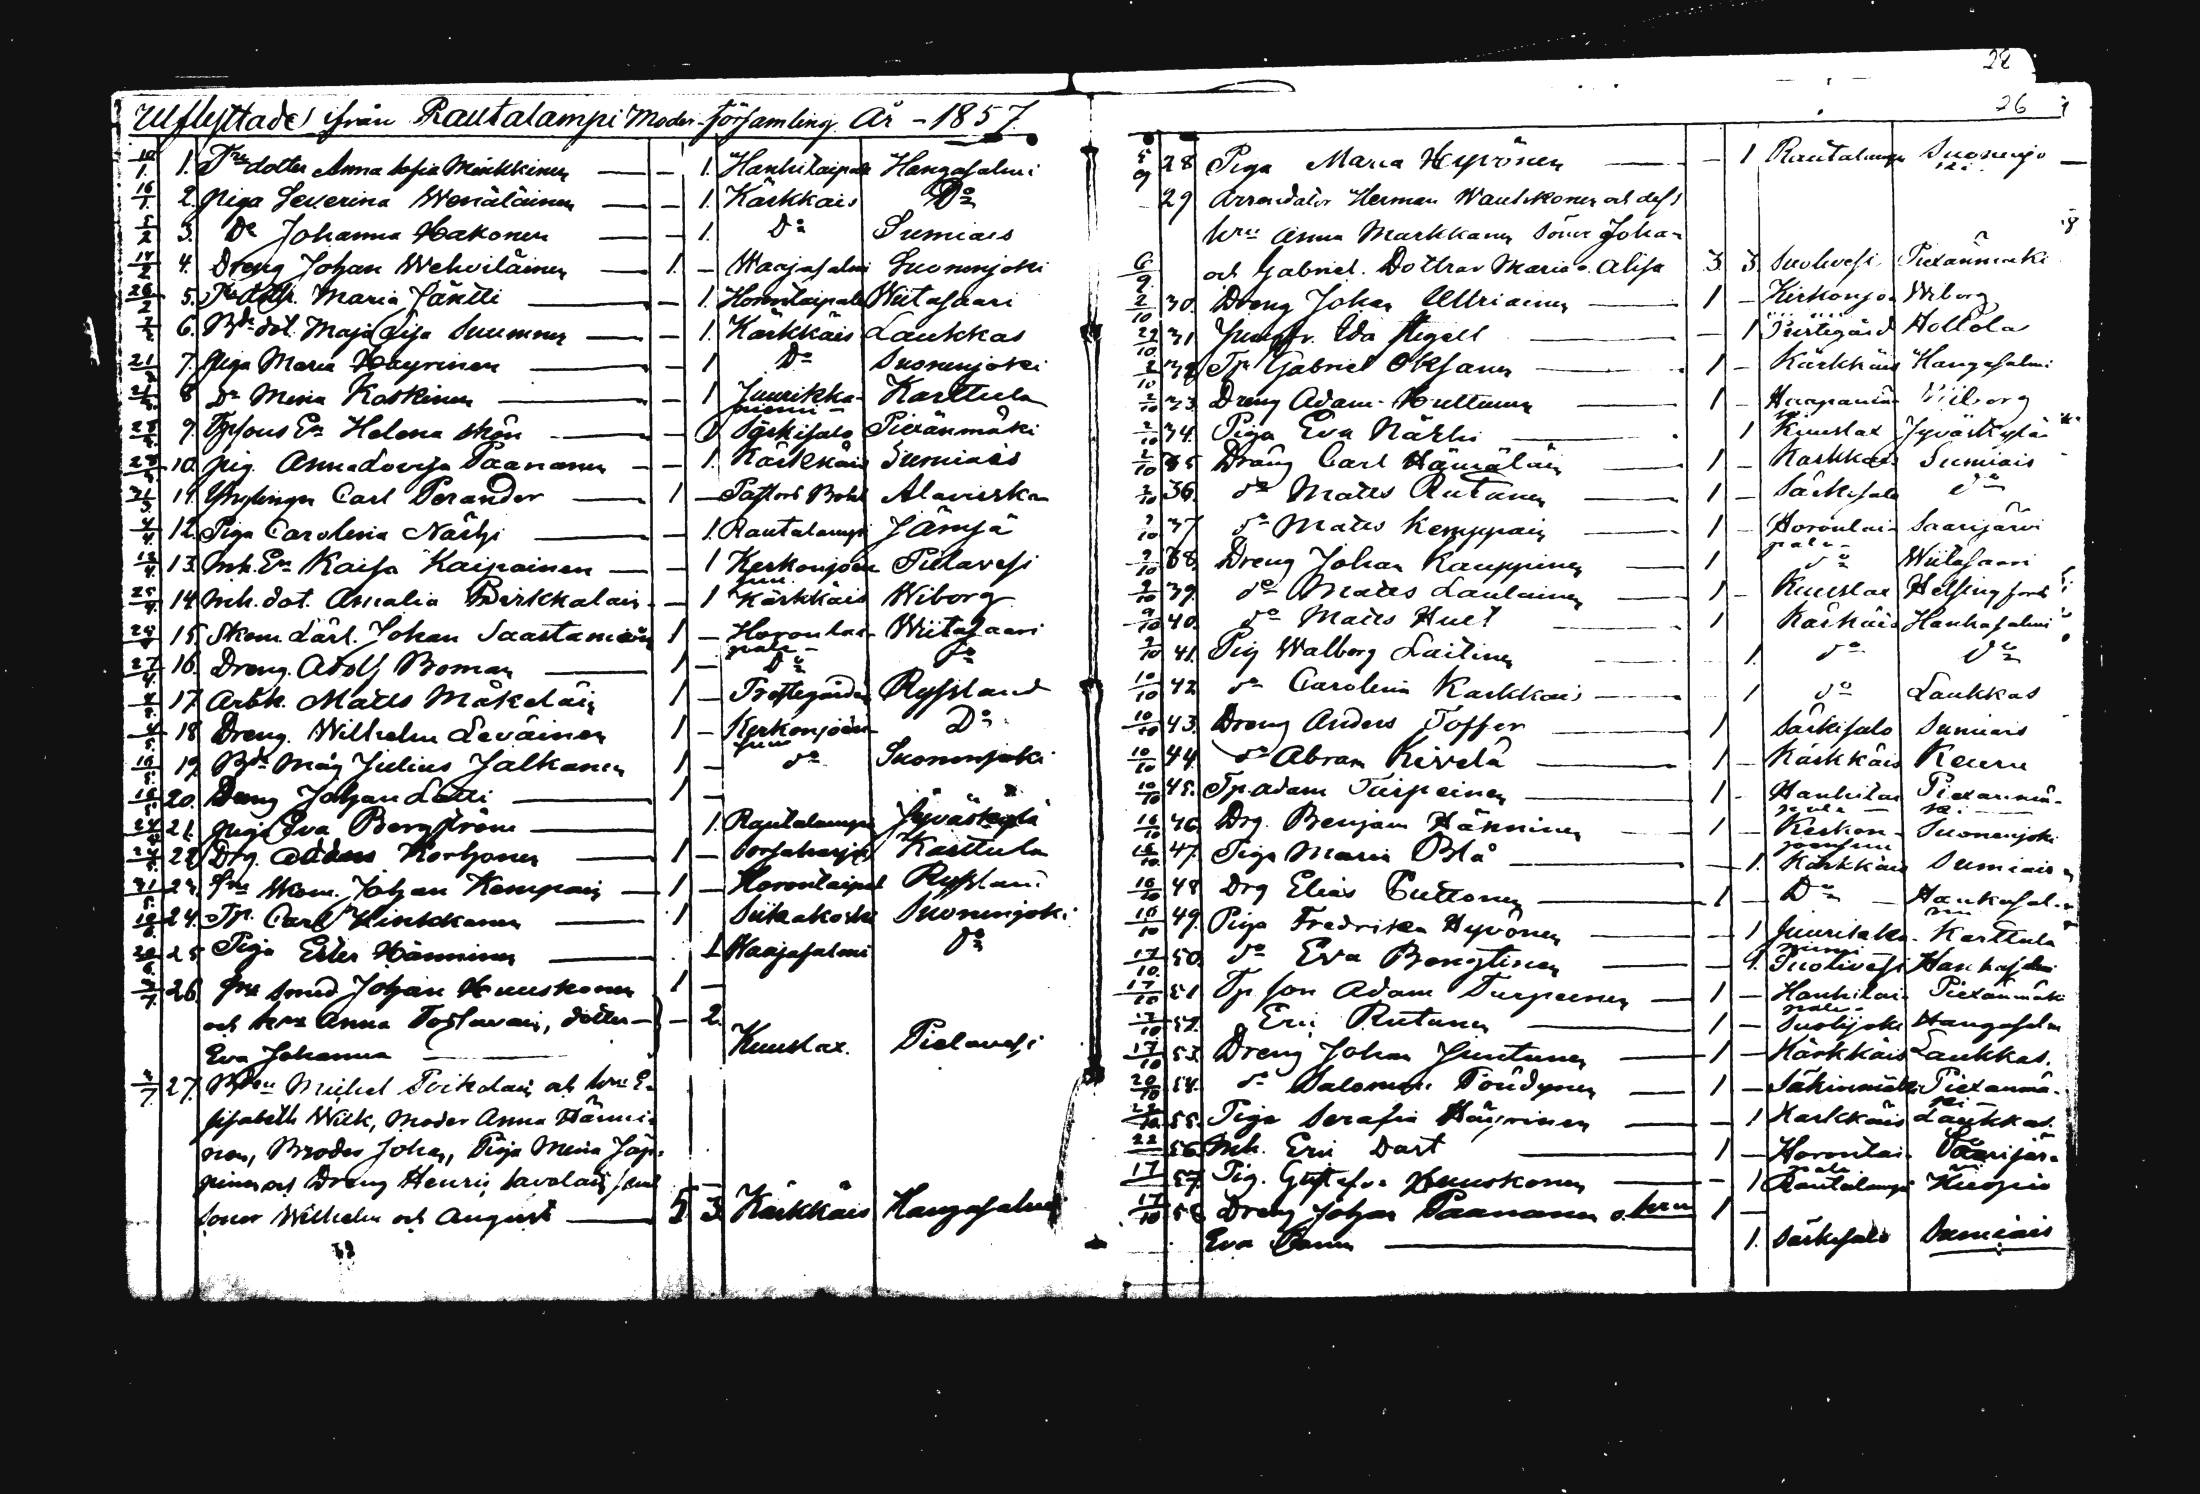 28
26
Utflyttade ifrån Rautalampi Moder församling År - 1857.
10/1 1. dotter Anna Sofia Minkkinen — — 1. Hankitaipale Hangasalmi
16/1 2. Piga Severina Wenäläinen — — 1. Kärkkäis Do
5/2 3. Do Johanna Hakonen — — 1. Do Sumiais
14/2 4. Dreng Johan Wehviläinen — 1. — Waajasalmi Suonenjoki
26/2 5. Maria Jäntti — 1. Horontaipale Wiitasaari
6. dot. Maja Lisa Suumnen — — 1. Kärkkäis Laukkas
21/3 7. Piga Maria Häyrinen — — 1 Do Suonenjoki
8 Do Mina Koskinen — — 1 Juurikka- Karttula
niemi -
9. Helena Skön — — 1 Särkisalo Piexänmäki
10. Pig. Anna Lovisa Paananen — — 1. Kärkkäis Sumiais
11. Ynglingen Carl Perander — 1 — Alaviska
4/4 12. Piga Carolina Närhi — — 1. Rautalampi Jämsä
13. Inh. Kaisa Kaipainen — — 1 Kerkonjoen Pielavesi
suu
14. Inh. dot. Amalia Pirkkalain — 1 Kärkkäis Wiborg
15. Skom. Lärl. Johan Saastamoin 1 — Horontai- Wiitasaari
pale -
27/4 16. Dreng. Adolf Boman — 1 — Do Do
17. Arbk. Matts Mäkeläin 1 — Prestegården Ryssland
18 Dreng. Wilhelm Leväinen 1 — Kerkonjoen- Do
suu
16/5 19. Måg Julius Jalkanen 1 — do Suonenjoki
16/5 20. Dreng Johan Lätti — 1 —
21. Piga Eva Bergström — 1. Rautalampi Jyväskylä
22. Drg. Anders Korhonen — 1 — Sorsaharju Karttula
23. Skom. Johan Kempain — 1 — Horontaipal Ryssland
24. Tp. Carl Minkkanen — 1 Siikakoski Suonenjoki
25 Piga Ester Hänninen — 1 Waajasalmi do
26. Smed Johan Huuskonen 1 —
och hru Anna Toslavain, dotter — — 2.
Eva Johanna — Kuuslax. Pielavesi
27. Michel Poikolain och hru E-
lisabeth Wiik, Moder Anna Hänni-
nen, Broder Johan, Piga Maria Jäp-
pinen och Dreng Henric Savolain samt
söner Wilhelm och August — 5 3 Kärkkäis Hangasalmi
5/9 28 Piga Maria Hyvönen — — 1 Rautalampi Suonenjo —
29 Arrendator Herman Wauhkonen och dess
hru Anna Markkanen Söner Johan
6/9 och Gabriel. Döttrar Maria o. Alisa 3 3. Suolivesi Piexänmäki
2/10 30. Dreng Johan Uttriainen — 1 — Kerkonjoe Wiborg
31 Jungfr. Ida Aigell — — 1 Hollola
2/10 32. Tp. Gabriel Oksanen — 1 — Kärkkäis Hangasalmi
2/10 33. Dreng Adam Hulttunen — 1 — Haapaniem Wiborg
2/10 34. Piga Eva Närhi — 1 Kuuslax Jyväskylä
2/10 35 Dräng Carl Hämäläin — 1 — Kärkkäis Sumiais
2/10 36. do Matts Rutanen — 1 — Särkisalo do
37 do Matts Kemppain — 1 — Horontai- Saarijärvi
pale -
38. Dreng Johan Kauppinen — 1 do Wiitasaari
39. do Matts Laulainen — 1 — Kuuslax Helsingfors
9/10 40. do Matts Huet — 1 Kärkäis Hankasalmi
41. Pig Walborg Laitinen — 1. do do
10/10 42 do Carolina Karkkais — 1 do Laukkas
10/10 43. Dreng Anders Toffer — 1 Särkisalo Sumiais
10/10 44. do Abram Kivelä — 1 — Kärkkäis Keuru
10/10 45. Tp Adam Turpeinen — 1 — Hankitai Piexänmä-
pale — ki —
16/10 46. Drg. Benjam Hänninen — 1 — Kerkon- Suonenjoki
joensuu
47. Piga Maria Blå — — 1. Kärkkäis Sumiais
16/10 48 Drg Elias Puttonen — 1 — Do — Hankasal-
mi
16/10 49. Piga Fredrika Hyvönen — — 1 Juurikka- Karttula
niemi
17/10 50. do Eva Bengtinen — — 1. Suolivesi Hankasalmi
17/10 51 Tp son Adam Turpeinen — 1 — Hankitai- Piexänmäki
pale -
17/10 52. Eric Rutanen — 1 — Suolijoki Hangasalm
17/10 53. Dreng Johan Juntunen — 1 — Kärkkäis Laukkas.
20/10 54. do Salomon — 1 — Piexänmä-
ki —
55. Piga Serafia Häyrinen — — 1 Karkkäis Laukkas.
56. Inh. Eric Dart — 1 — Horontai- Saarijär-
pale vi
57. Pig. Gustafva Huuskonen — — 1 Rautalampi Kuopio
17/10 58 Dreng Johan Paananen o. hru 1 —
Eva — 1. Särkisalo Sumiais